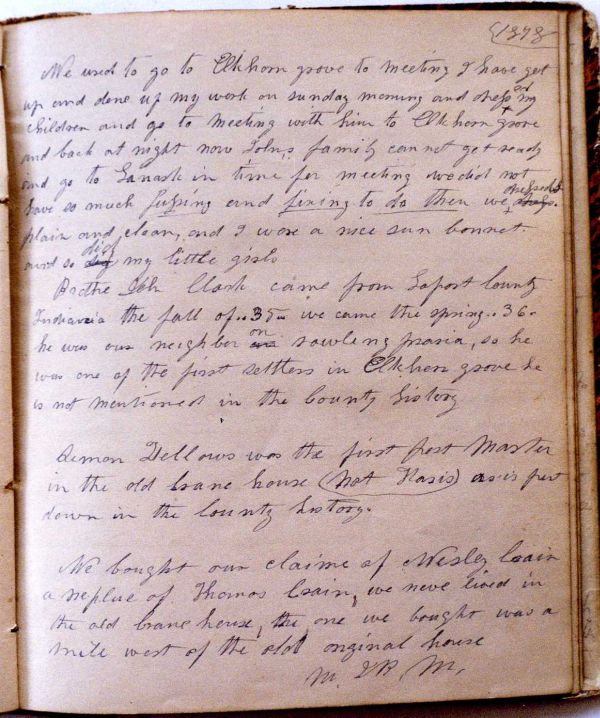 (1878
We used to go to Elkhorn grove to meeting I have get
up and done up my work on sunday morning and dress my
children and go to meeting with him to Elkhorn grove
and back at night now John,s family can not get ready
and go to Lanark in time for meeting we did not
have so much fussing and fixing to do then we dressed
plain and clean, and I wore a nice sun bonnet.
and so did my little girls
Clark came from Laport County
the fall of..35.. we came the spring..36.
he was our neighbor on rowling praria, so he
was one of the first settlers in Elkhorn grove he
is not mentioned in the County history
was the first post Master
in the old Crane house (not Haris) as is put
down in the County history.
We bought our claime of Wesley Crain
a neplue of Thomas Crain, we neve lived in
the old Crane house, the one we bought was a
mile west of the old original house
M. M.